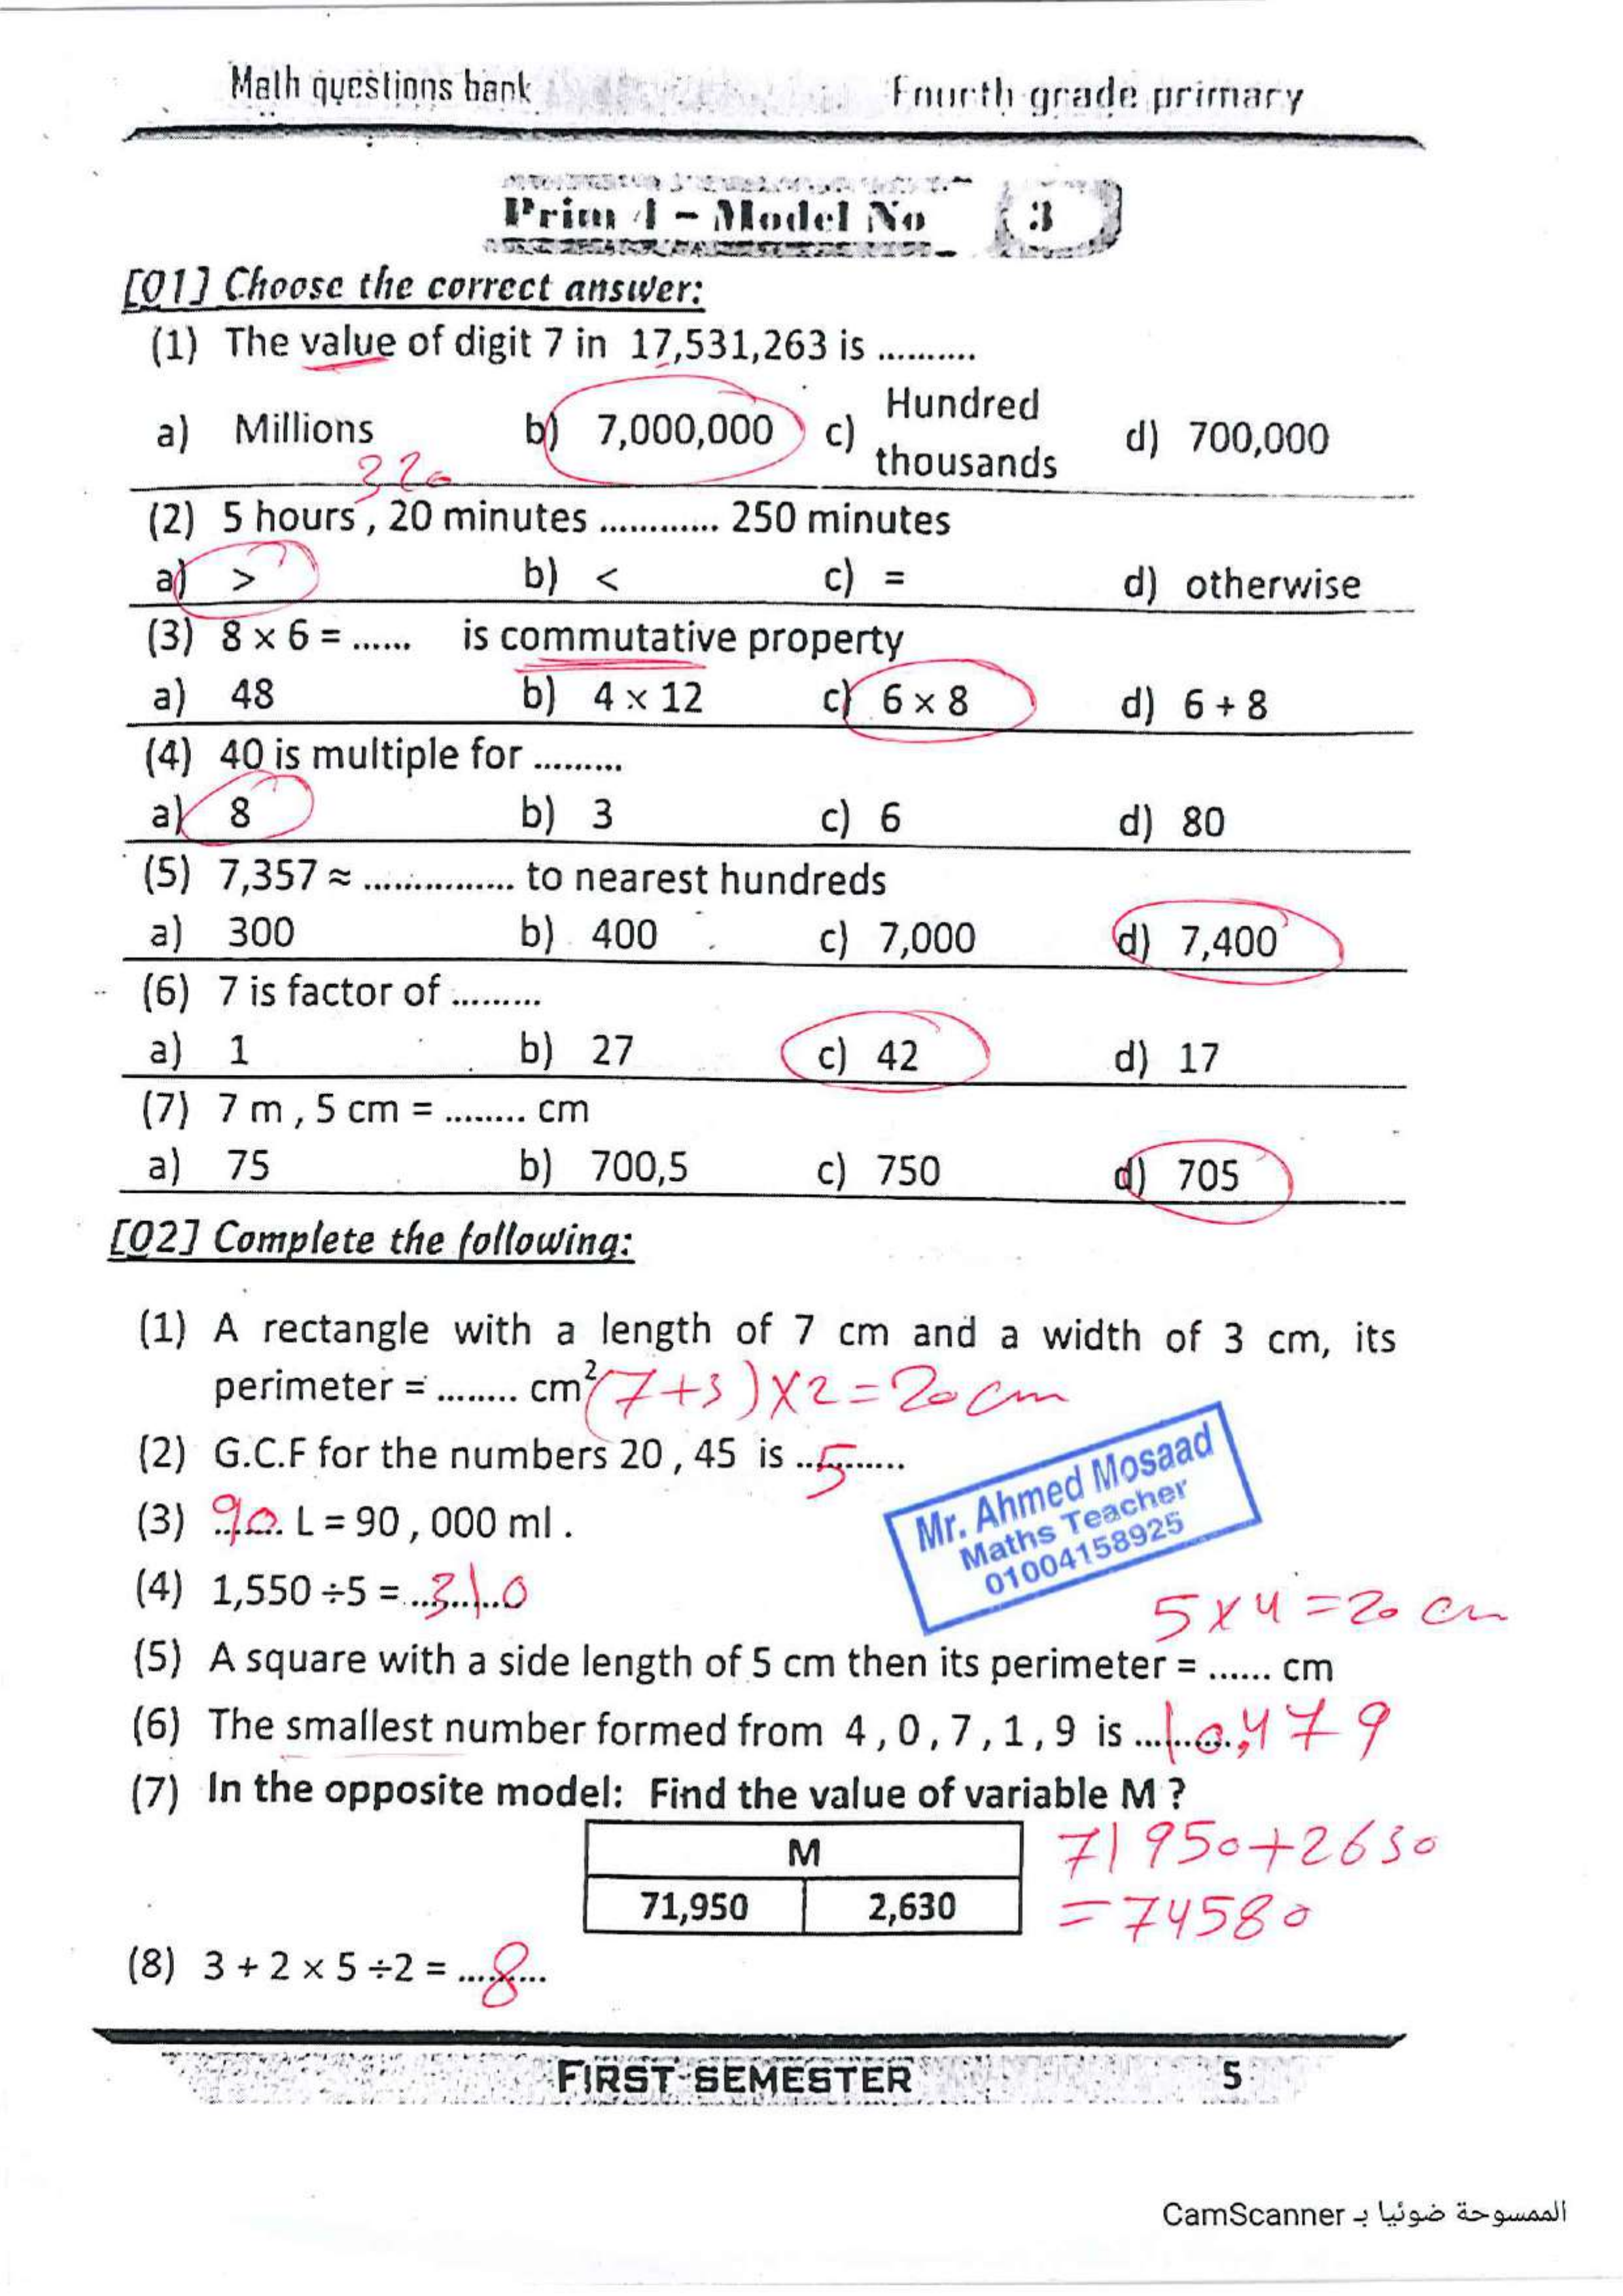 Math questions bank Fourth grade primary
Prim 4 - Model No 3
[Q1] Choose the correct answer:
(1) The value of digit 7 in 17,531,263 is ..........
a) Millions b) 7,000,000 c) Hundred thousands d) 700,000
320
(2) 5 hours , 20 minutes ............ 250 minutes
a) > b) < c) = d) otherwise
(3) 8 × 6 = ...... is commutative property
a) 48 b) 4 × 12 c) 6 × 8 d) 6 + 8
(4) 40 is multiple for .........
a) 8 b) 3 c) 6 d) 80
(5) 7,357 ≈ ............... to nearest hundreds
a) 300 b) 400 c) 7,000 d) 7,400
(6) 7 is factor of .........
a) 1 b) 27 c) 42 d) 17
(7) 7 m , 5 cm = ........ cm
a) 75 b) 700,5 c) 750 d) 705
[Q2] Complete the following:
(1) A rectangle with a length of 7 cm and a width of 3 cm, its
perimeter = ........ cm² (7+3)×2=20 cm
(2) G.C.F for the numbers 20 , 45 is ..5........
(3) 90 L = 90 , 000 ml .
(4) 1,550 ÷5 = ...310
Mr. Ahmed Mosaad
Maths Teacher
01004158925
5×4=20 cm
(5) A square with a side length of 5 cm then its perimeter = ...... cm
(6) The smallest number formed from 4 , 0 , 7 , 1 , 9 is ...10,479
(7) In the opposite model: Find the value of variable M ?
M
71,950 2,630
71950+2630
=74580
(8) 3 + 2 × 5 ÷2 = ....8....
FIRST SEMESTER 5
الممسوحة ضوئيا بـ CamScanner